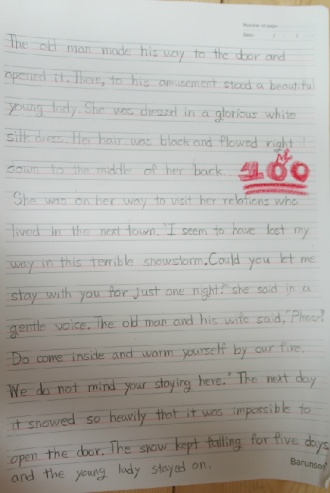 Number of page:
Date:
The old man made his way to the door and
opened it. There, to his amusement stood a beautiful
young lady. She was dressed in a glorious white
silk dress. Her hair was black and flowed right
down to the middle of her back. 100
"She was on her way to visit her relations who
lived in the next town. "I seem to have lost my
way in this terrible snowstorm. Could you let me
stay with you for just one night?" she said in a
gentle voice. The old man and his wife said, "Please!
Do come inside and warm yourself by our fire.
We do not mind your staying here." The next day
it snowed so heavily that it was impossible to
open the door. The snow kept falling for five days
and the young lady stayed on.
Barunson